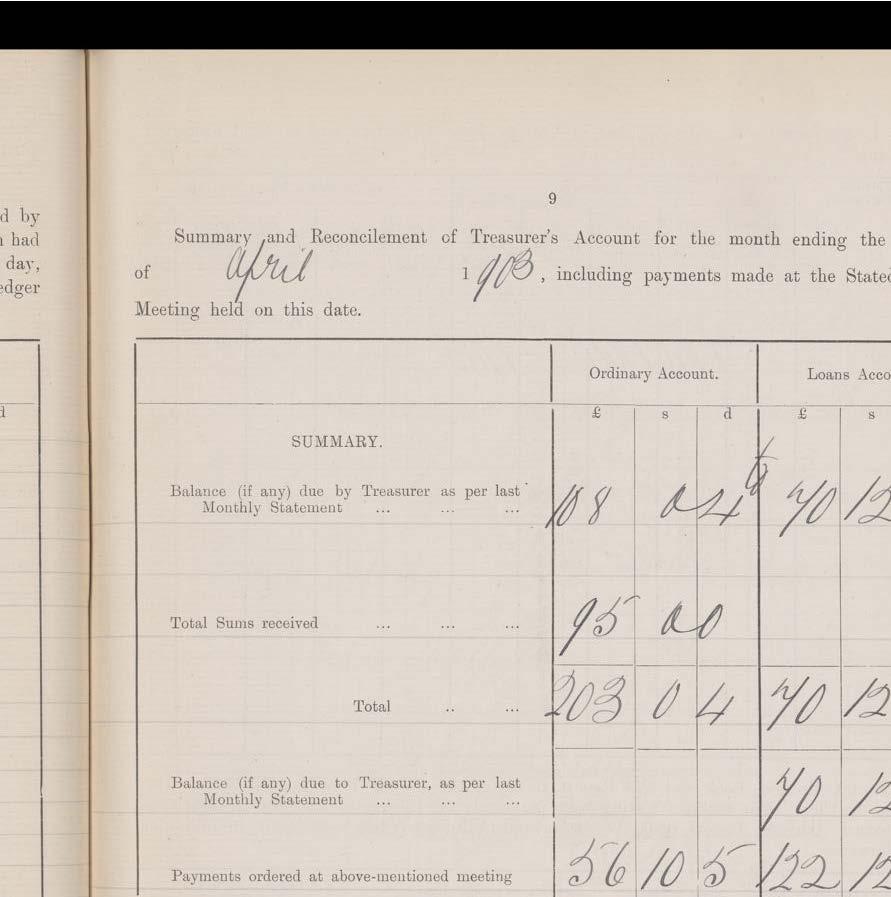 d by
had
day,
edger
d
9
Summary and Reconcilement of Treasurer's Account for the month ending the
of April 1903, including payments made at the Stated
Meeting held on this date.
Ordinary Account. Loans Acco
£ s d £ s
SUMMARY.
Balance (if any) due by Treasurer as per last
Monthly Statement ... ... ... 108 0 4 70 12
Total Sums received ... ... ... 95 0 0
Total .. ... 203 0 4 70 12
Balance (if any) due to Treasurer, as per last
Monthly Statement ... ... ... 70 12
Payments ordered at above-mentioned meeting 56 10 5 122 12